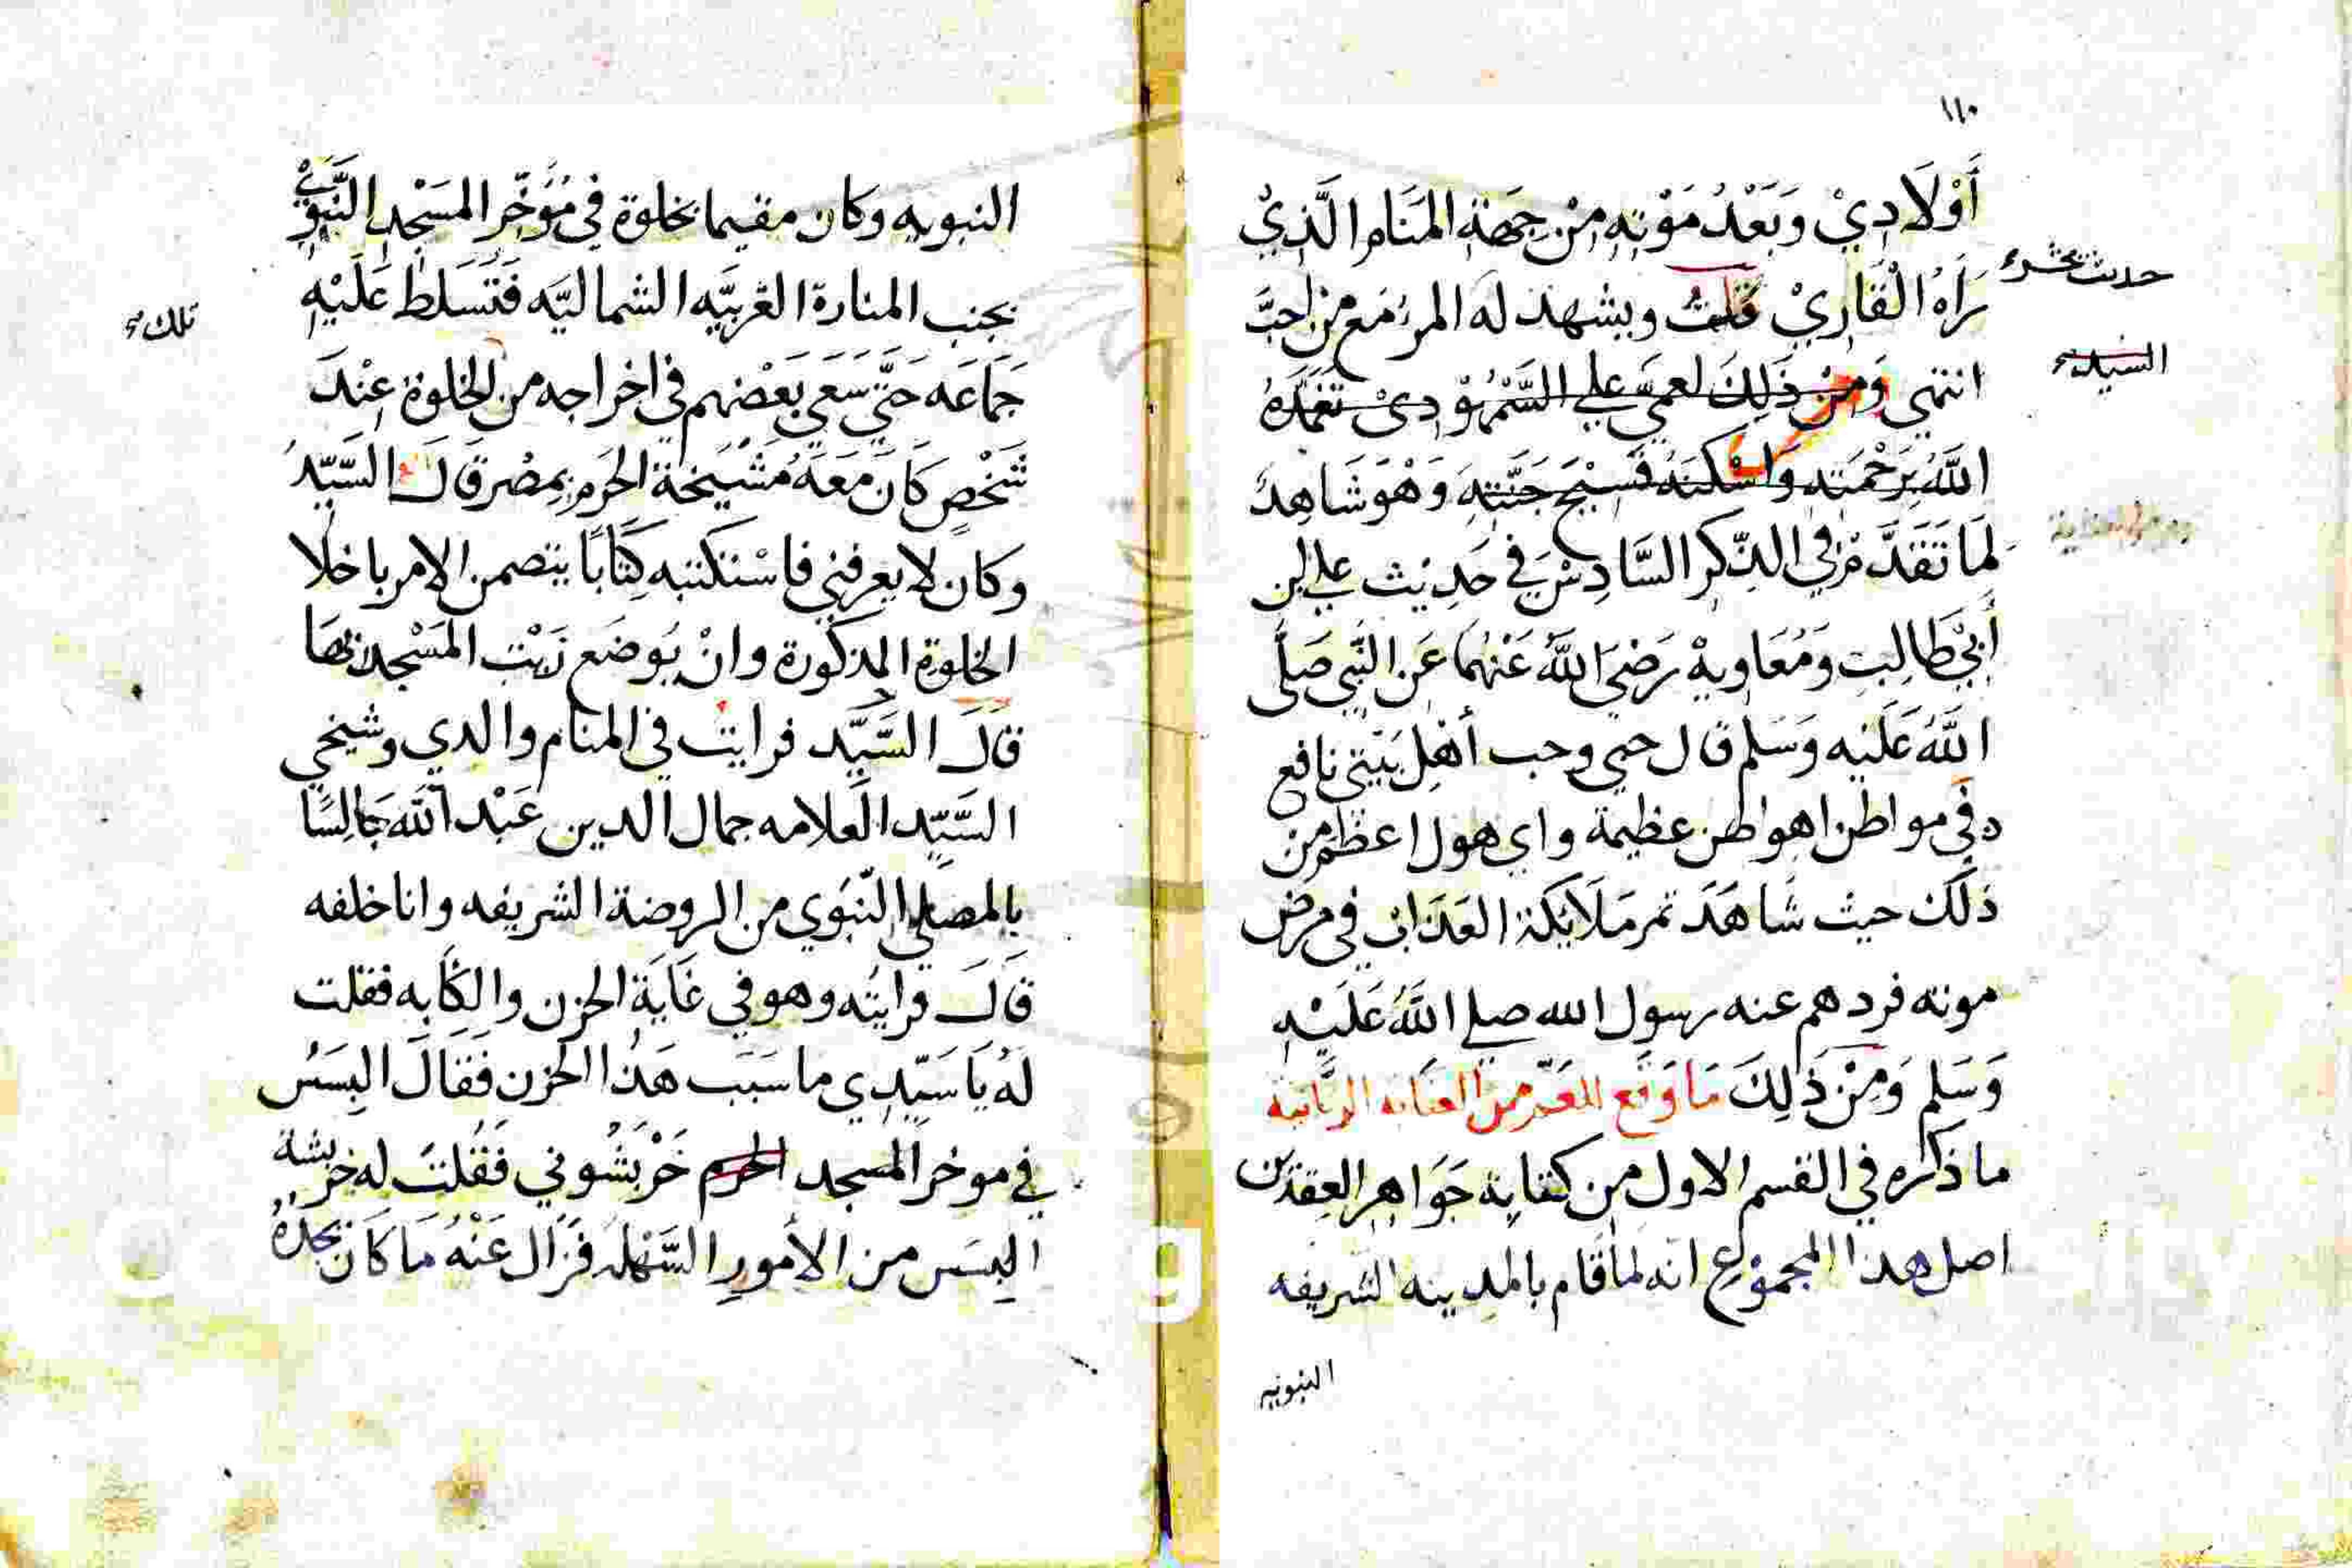 ١١٠
أَوْلَادِيْ وَبَعْدُ مَوْتِهِ مِنْ جِهَةِ المَنَامِ الَّذِيْ
حديث يحشر
رَآهُ الْقَارِيْ قُلْتُ ويشهد له المرءُ مَع من احبَّ
السيد
انتهي وَمِنْ ذَلِكَ لعمي علي السَّمْهُوْدِيْ تَغَمَّدَهُ
اللَّهُ بِرَحْمَتِهِ وَاسْكَنَهُ فَسِيْحَ جَنَّتِهِ وَهْوَ شَاهِدٌ
لِمَا تَقَدَّمَ في الذِّكر السَّادِسْ في حَدِيْث علي ابن
أَبِيْ طَالِبٍ وَمُعَاوِيهْ رَضِيَ اللَّهُ عَنْهُمَا عَنِ النَّبِي صَلَّى
اللَّهُ عَلَيْهِ وَسَلَّم قال حبي وحب أَهْلِ بَيْتِيْ نافع
في مواطن اهوالهن عظيمة واي هول اعظم من
ذَلك حيث شَاهَدَ تمر مَلَائِكة العَذَاب في مرض
موته فردهم عنه رسول الله صلى اللَّهُ عَلَيْهِ
وَسَلم وَمِنْ ذَلِكَ مَا وَقَع للعَمّ من العنايه الربَّانية
ما ذكره في القسم الاول من كتابه جَوَاهر العِقدَين
اصل هذا المجموْع انه لما قَام بالمدينه الشريفه
النبويه
النبويه وكان مقيما بخلوة في مُؤَخَّرِ المَسْجِدِ النَّبَوِيْ
بجنب المنارة الغربيَّه الشماليَّه فَتَسَلَّط عَلَيْهِ
تلك
جَمَاعَه حَتَّي سَعَي بَعْضهم في اخراجه من الخلوة عِنْدَ
شَخْصٍ كَانَ مَعَهُ مَشْيَخَة الحَرَمِ بِمِصْر قَالَ السَّيِّدُ
وكان لا يعرفني فاسْتكتبه كِتَابًا يتضمن الامر باخلا
الخلوة المذكورة وانْ يُوضَع زَيْت المَسْجد بهَا
قَالَ السَّيِّد فرايت في المنام والدي وشيخي
السَّيِّد العلامه جمال الدين عَبْد اللَّه جَالِسًا
بالمصلي النّبَوي من الروضة الشريفه وانا خلفه
قَالَ فرايتُه وهو في غَايَة الحزن والكَآبه فقلت
لَهُ يَا سَيِّدِي ما سَبَب هَذا الحزن فَقَالَ البِسَسُ
في موخر المسجد الحرم خَرْبَشُوني فَقُلتُ له خربشة
البِسَس من الأمورِ السَّهْلَه فَزَال عَنْهُ مَا كَانَ يَجِدُهُ